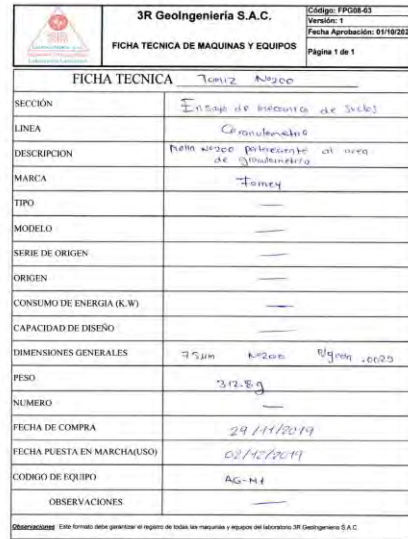 3R GeoIngeniería S.A.C.
FICHA TECNICA DE MAQUINAS Y EQUIPOS
Código: FPG08-63
Versión: 1
Fecha Aprobación: 01/10/202
Página 1 de 1
FICHA TECNICA Tamiz N°200
SECCIÓN Ensayo de mecanica de Suelos
LINEA Granulometria
DESCRIPCION Malla N°200 perteneciente al area
de granulometria
MARCA
TIPO —
MODELO —
SERIE DE ORIGEN —
ORIGEN —
CONSUMO DE ENERGIA (K.W) —
CAPACIDAD DE DISEÑO —
DIMENSIONES GENERALES 75µm N°200 .0029
PESO 312.8 g
NUMERO —
FECHA DE COMPRA 29/11/2019
FECHA PUESTA EN MARCHA(USO) 02/12/2019
CODIGO DE EQUIPO AG-M1
OBSERVACIONES —
Observaciones: Este formato debe garantizar el registro de todas las maquinas y equipos del laboratorio 3R GeoIngenieria S.A.C.